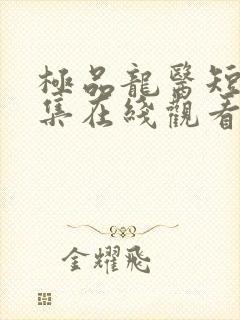 極品龍醫短
集在綫觀看
金耀飛